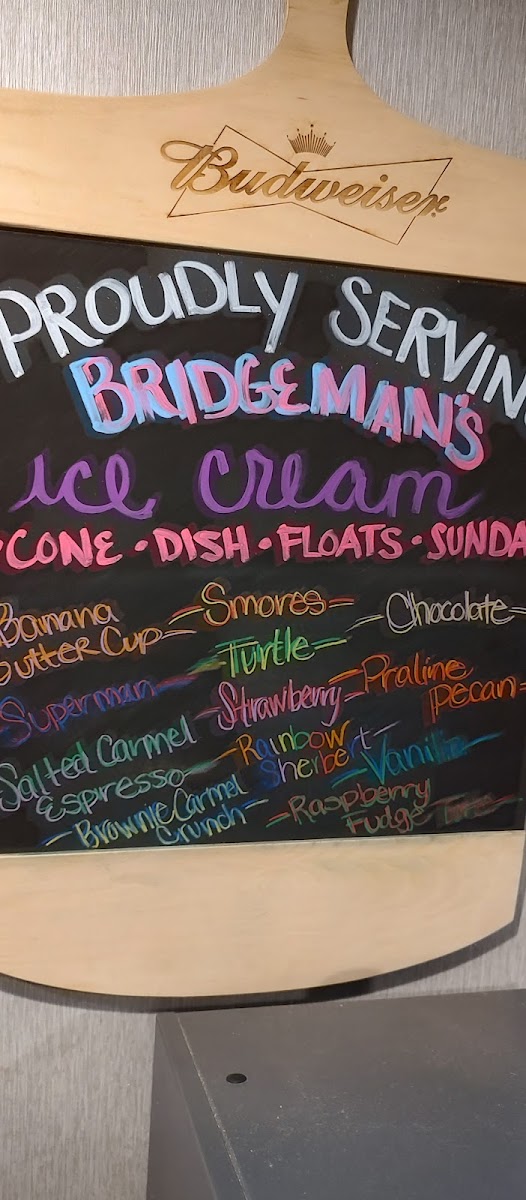 Budweiser
PROUDLY SERVING
BRIDGEMAN'S
ice cream
• CONE • DISH • FLOATS • SUNDA
Banana Butter Cup
Smores
Chocolate
Turtle
Superman
Strawberry
Praline Pecan
Salted Carmel Espresso
Rainbow Sherbert
Vanilla
Brownie Carmel Crunch
Raspberry Fudge